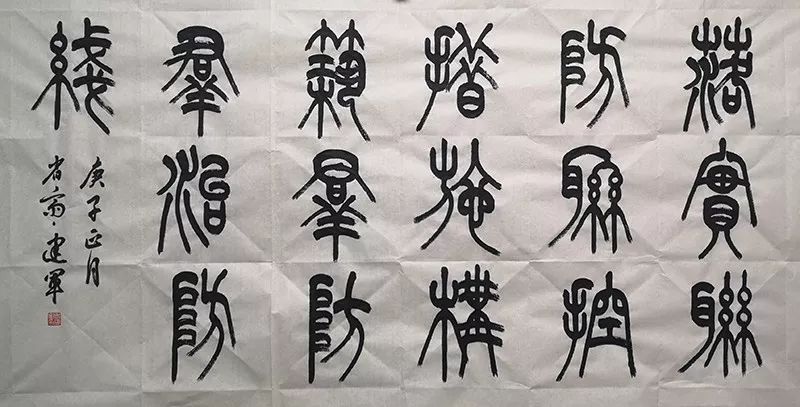 落實聯
防聯控
措施構
築羣防
羣治防
綫
庚子正月
省齋建軍